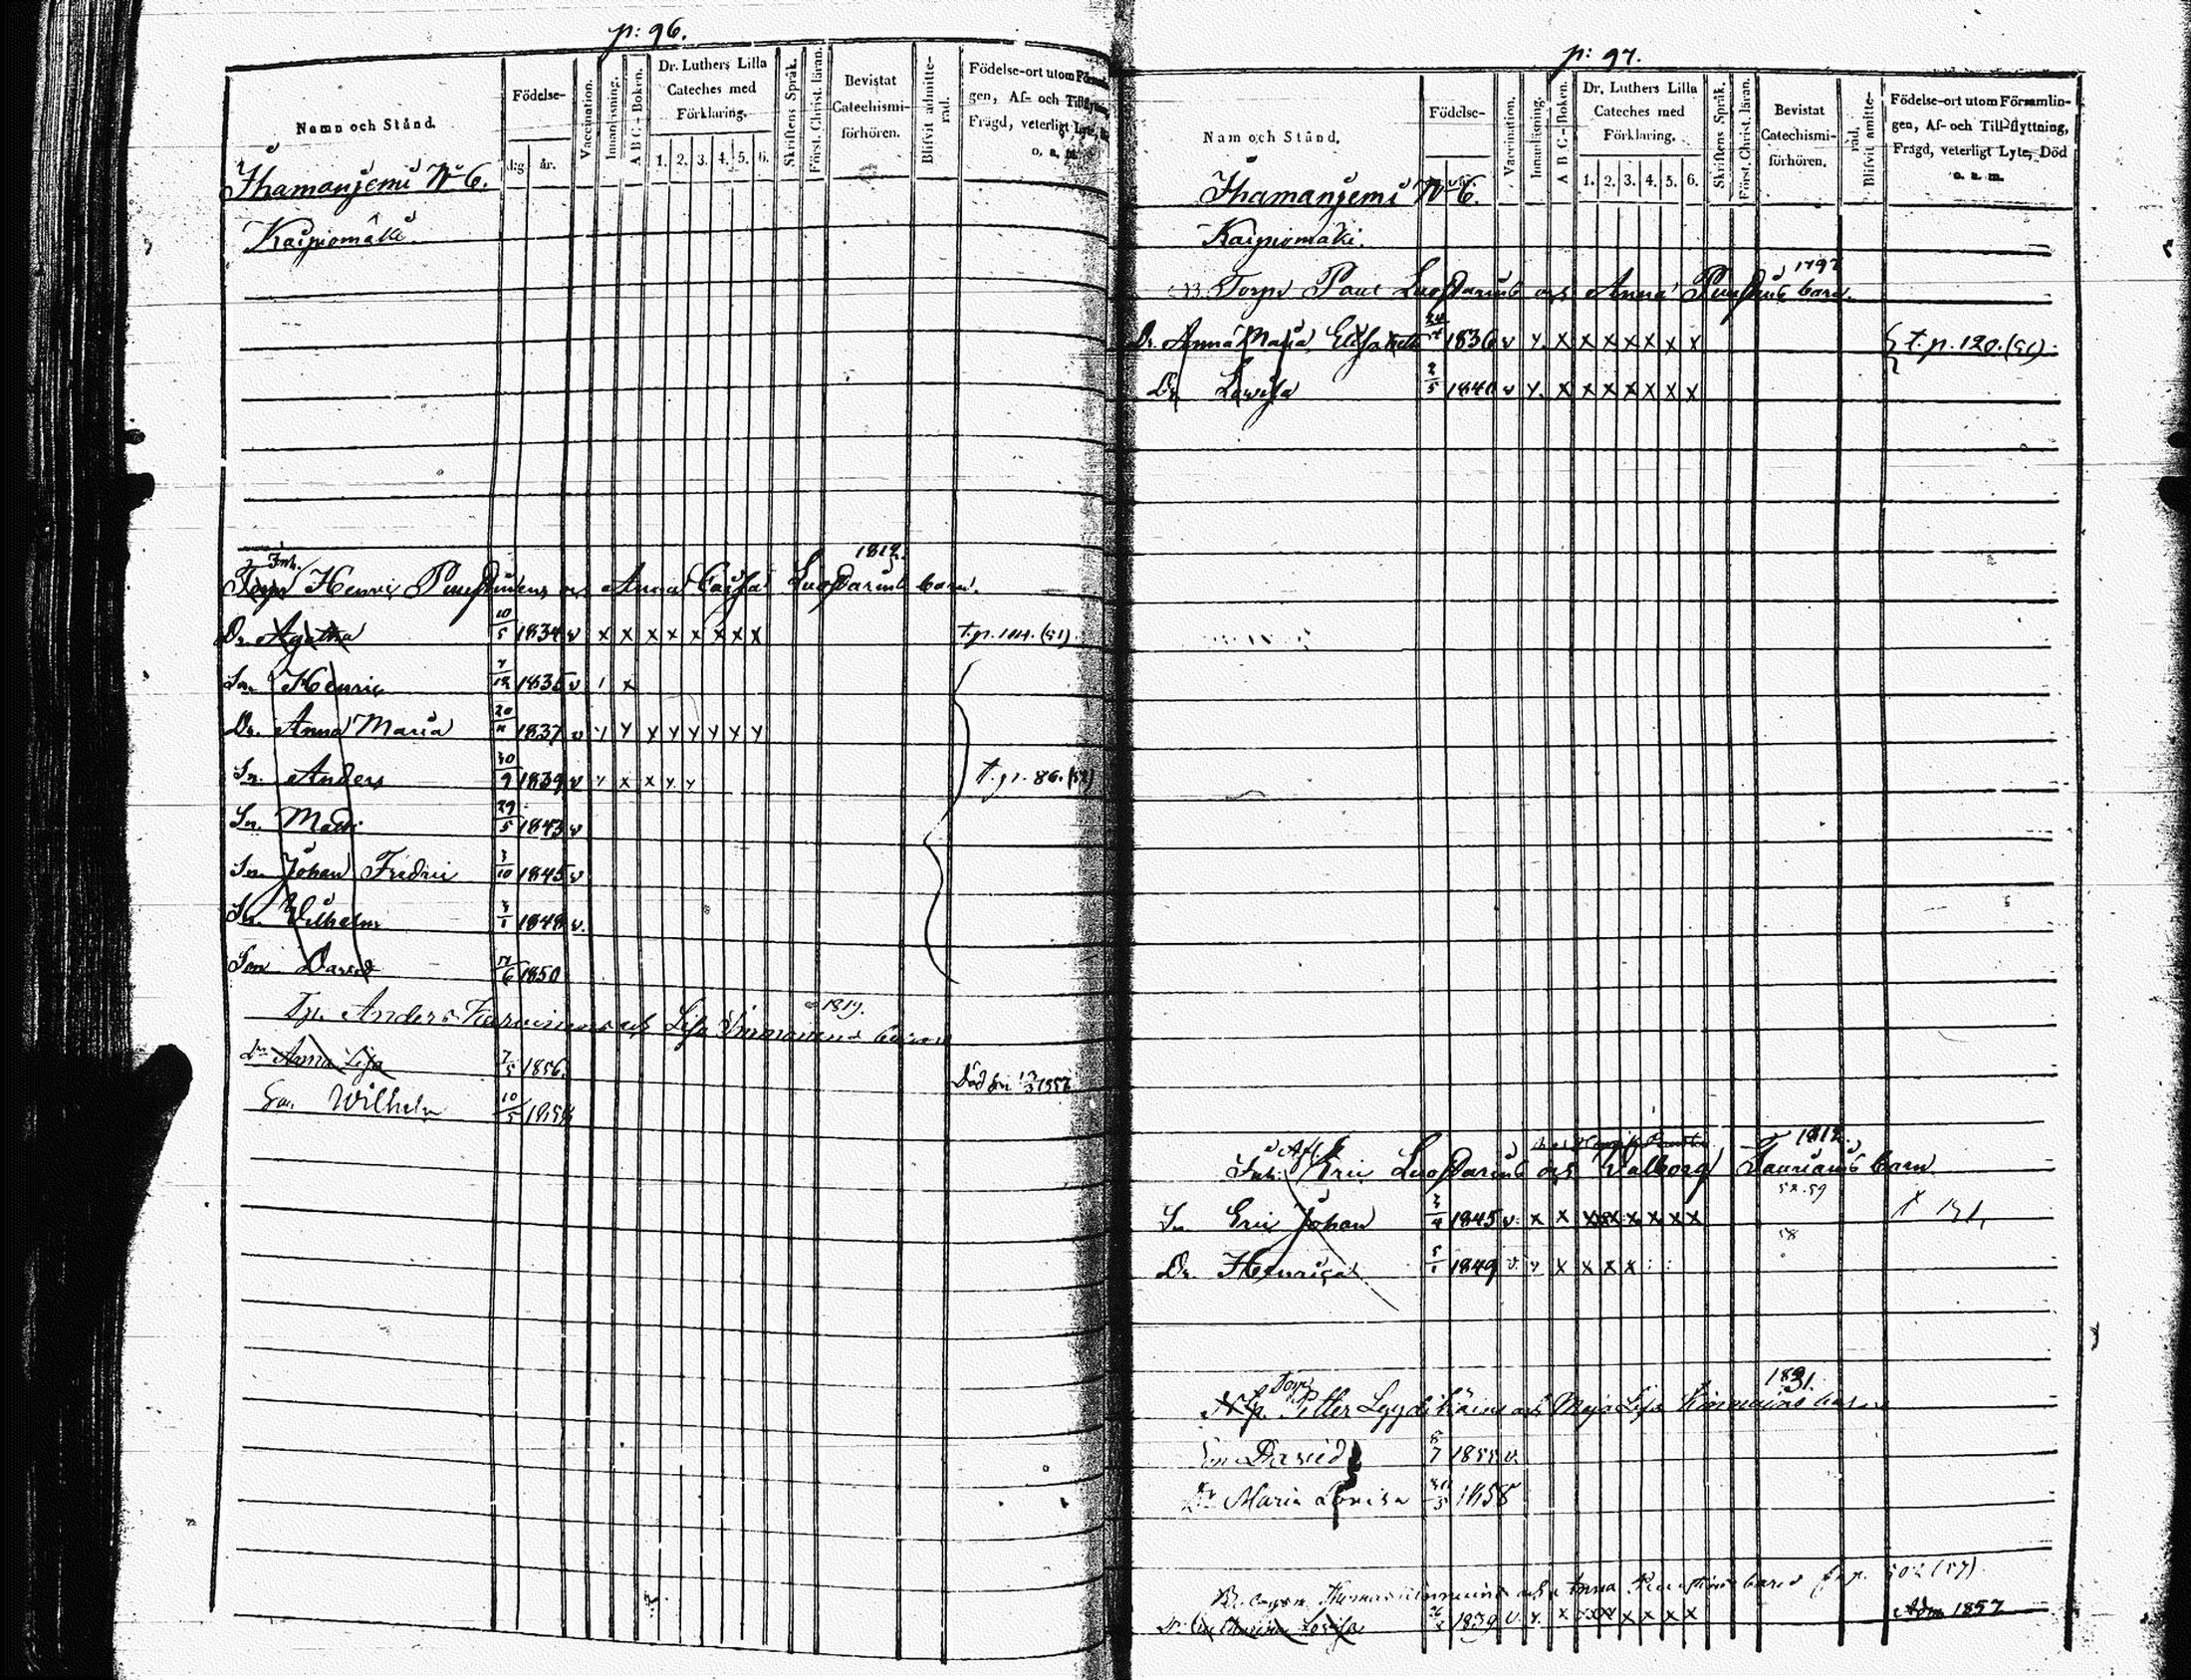 p: 96.
Namn och Stånd.
Födelse-
dag
år.
Vaccination.
Innanläsning.
A B C-Boken.
Dr. Luthers Lilla
Cateches med
Förklaring.
1. 2. 3. 4. 5. 6.
Skriftens Språk.
Först. Christ. läran.
Bevistat
Catechismi-
förhören.
Blifvit admitte-
rad.
Födelse-ort utom Församlin-
gen, Af- och Tillflyttning,
Frägd, veterligt Lyte, Död
o. a. m.
Ihamaniemi No 6.
Kaipiomäki.
1812.
Inh.
Torp Henric Puustinens och Anna Caisa Luostarins barn.
Dr. Agatha 10/5 1834 v x x x x x x x x t.p. 114. (51).
Sn. Henric 7/12 1835 v x
Dr. Anna Maria 20/11 1837 v
Sn. Anders 30/9 1839 v x x t.p. 86.
Sn. Matti 29/5 1843 v
Sn. Johan Fredric 3/10 1845 v
Sn. Wilhelm 3/1 1848 v.
Son David 1850
1819.
Anders och Lisa barn
Dr Anna Lisa 7/5 1856. Död den 1857
Son Wilhelm 10/5
p: 97.
Namn och Stånd.
Födelse-
Vaccination.
Innanläsning.
A B C-Boken.
Dr. Luthers Lilla
Cateches med
Förklaring.
1. 2. 3. 4. 5. 6.
Skriftens Språk.
Först. Christ. läran.
Bevistat
Catechismi-
förhören.
Blifvit amitte-
rad.
Födelse-ort utom Församlin-
gen, Af- och Till-flyttning,
Frägd, veterligt Lyte, Död
o. a. m.
Ihamaniemi No 6.
Kaipiomäki.
1797
Torp Paul Luostarins och Anna Puustins barn.
Dr. Anna Maria Elisabeth 1836 v x x x x x x x t.p. 120. (51).
Dr. Lovisa 2/5 1840 v x x x x x x x
1812.
Inh. Eric Luostarins och Valborg Taurians barn
58.59
Sn Eric Johan 1845 v. x x x x x x x
58
Dr. Henrica 5/1 1849 v. x x x x
1831.
Torp
Petter och Maja Lisa barn
Son David 7 1855 v.
Dr Maria Lovisa 1858
Anna barn 502 (57)
Dr Lovisa 1839 v. x x x x x Adm 1857